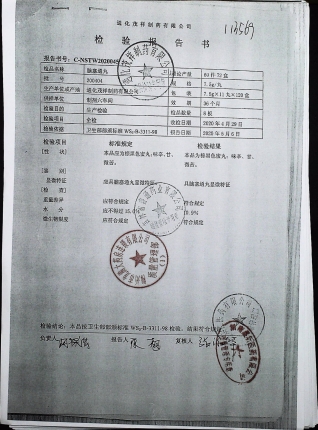 通化茂祥制药有限公司
113569
检 验 报 告 书
报告书号：C-NSTW2020045
检品名称 脑塞通丸
批 号 200404 规 格 7.5g/丸
生产单位或产地 通化茂祥制药有限公司 包 装 7.5g×11丸×120盒
供样单位 制剂六车间 效 期 36个月
检验目的 生产检验 检品数量 8板
检验项目 全检 收检日期 2020年4月29日
检验依据 卫生部颁药标准 WS₃-B-3311-98 报告日期 2020年5月6日
检验项目 标准规定 检验结果
[性 状] 本品应为棕黑色蜜丸；味辛、甘、微苦。 本品为棕黑色蜜丸；味辛、甘、微苦。
[鉴 别]
显微特征 应具脑塞通丸显微特征 具脑塞通丸显微特征
[检 查]
重量差异 应符合规定 符合规定
水 分 应不得过15.0%
微生物限度 应符合规定 符合规定
检验结论：本品按卫生部颁药标准 WS₃-B-3311-98 检验，结果符合规定
负责人 报告人 复核人